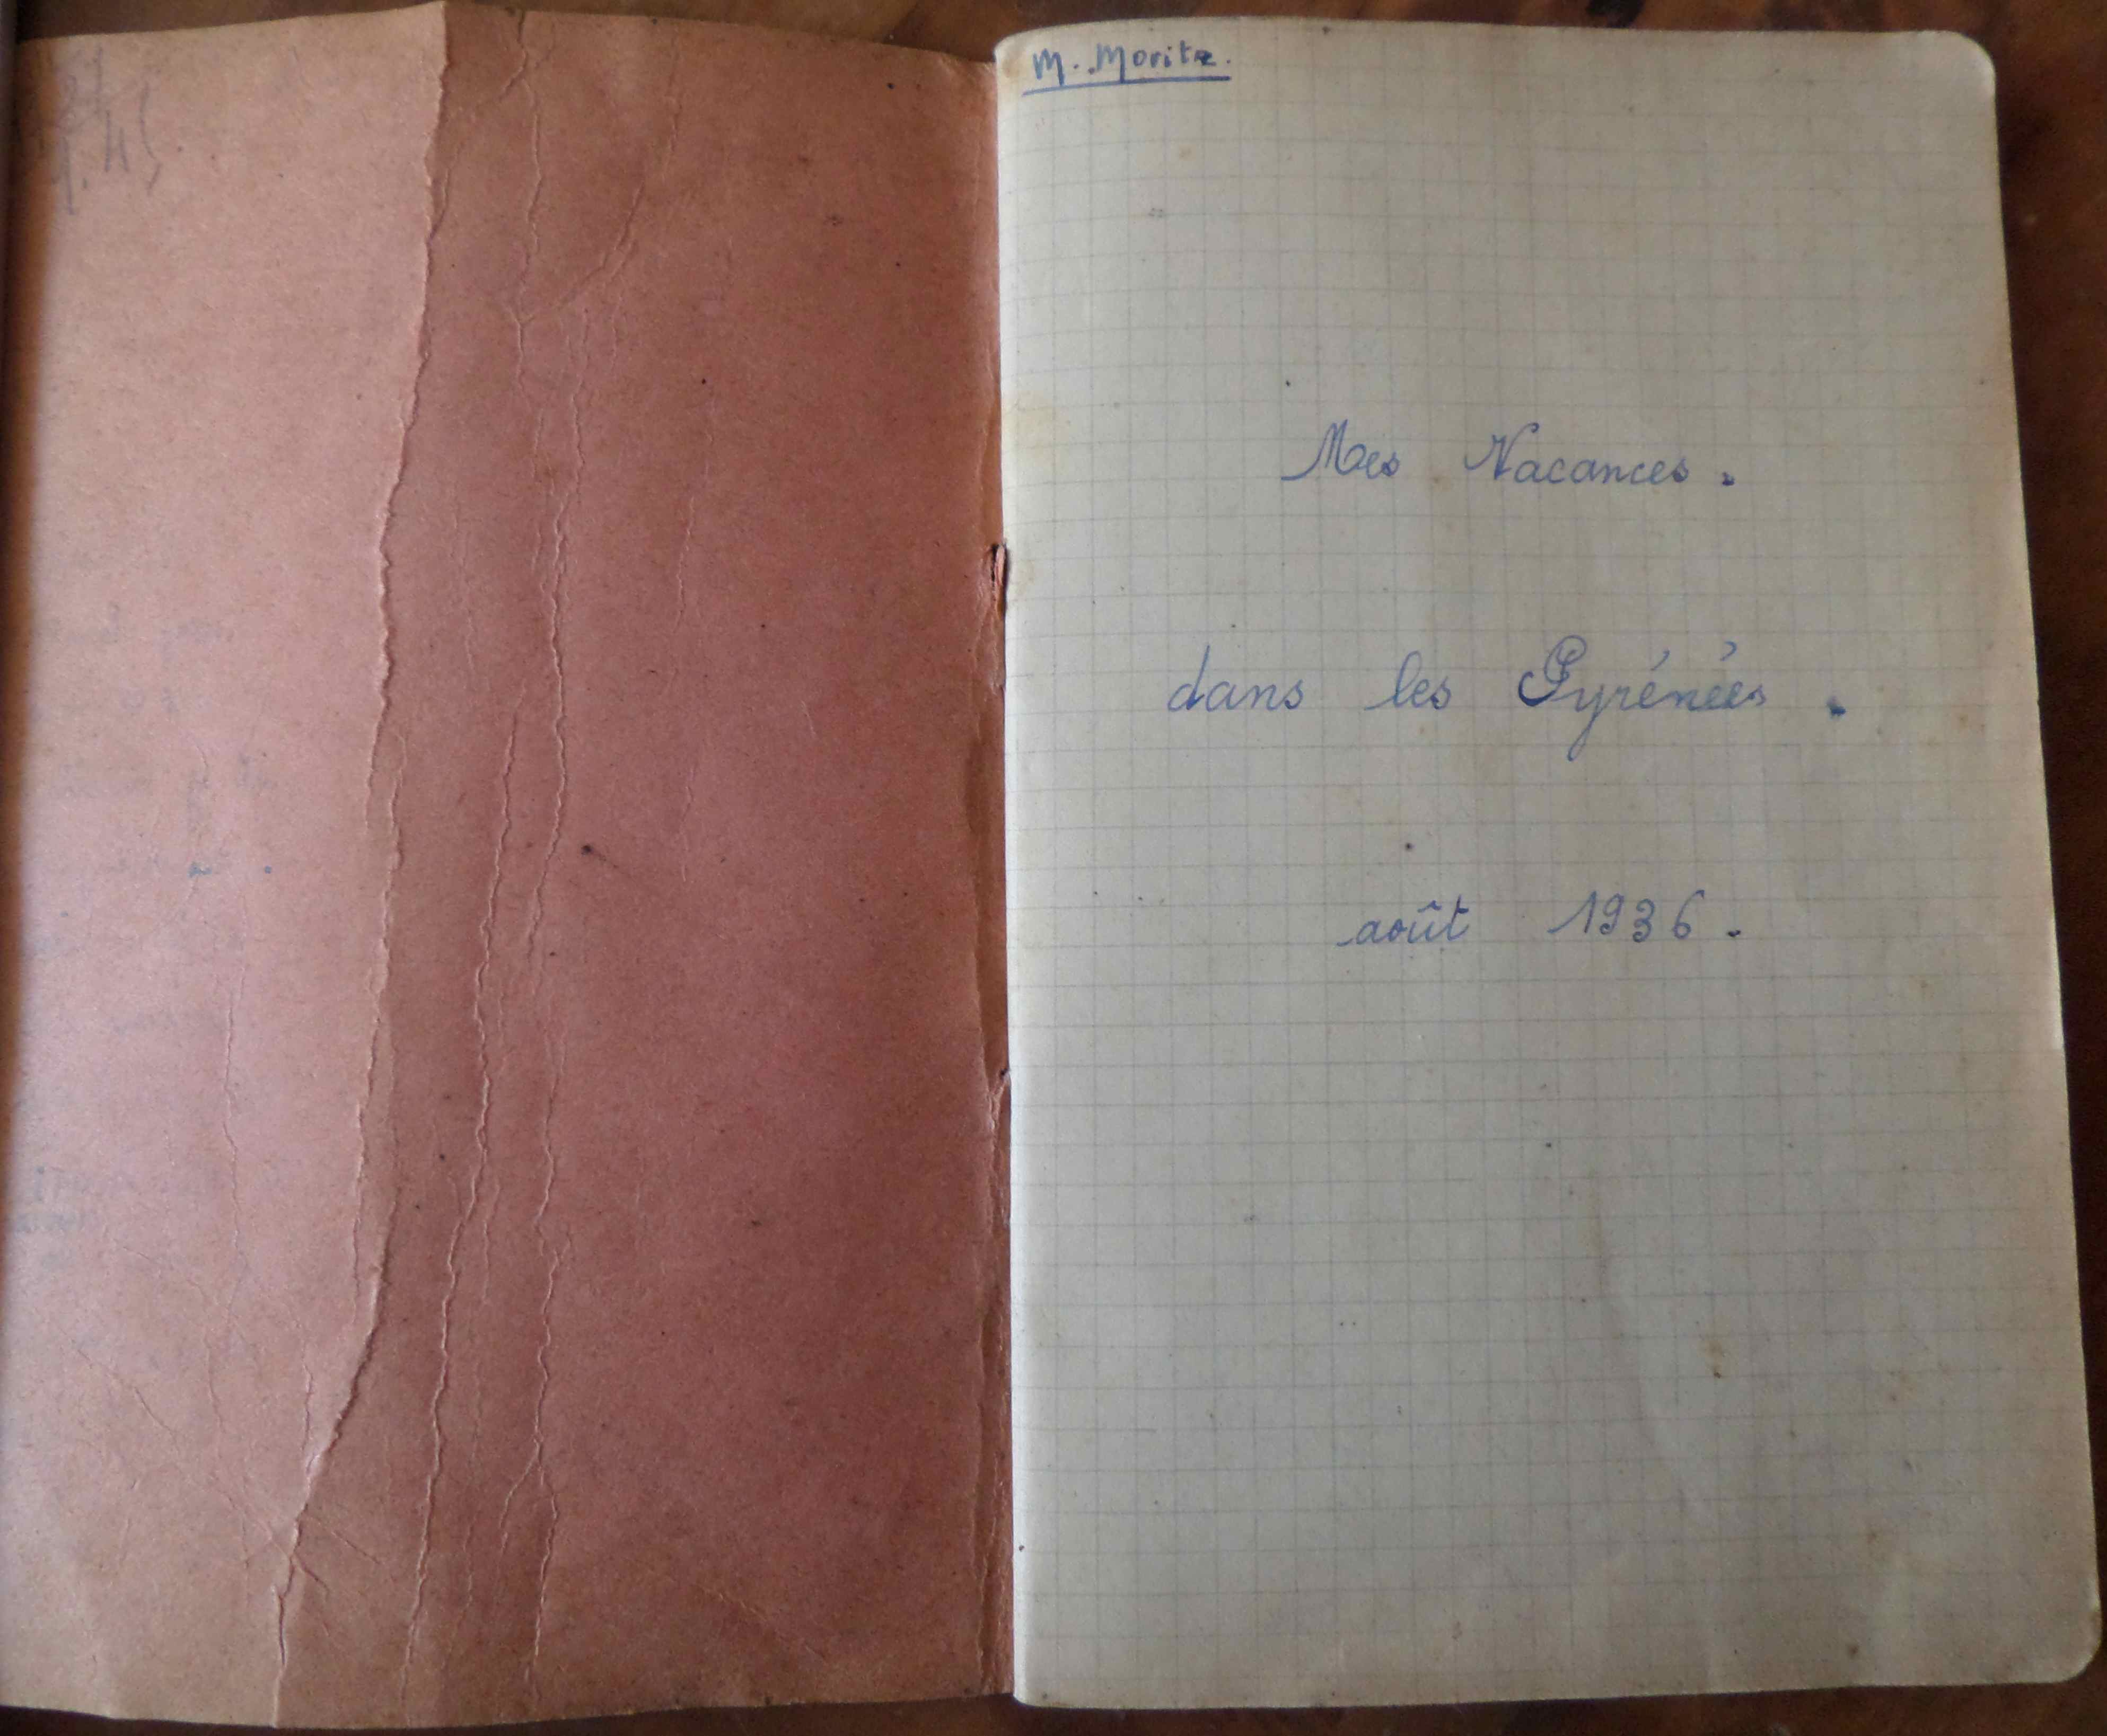 M. Moritz.
Mes Vacances.
dans les Pyrénées.
août 1936.